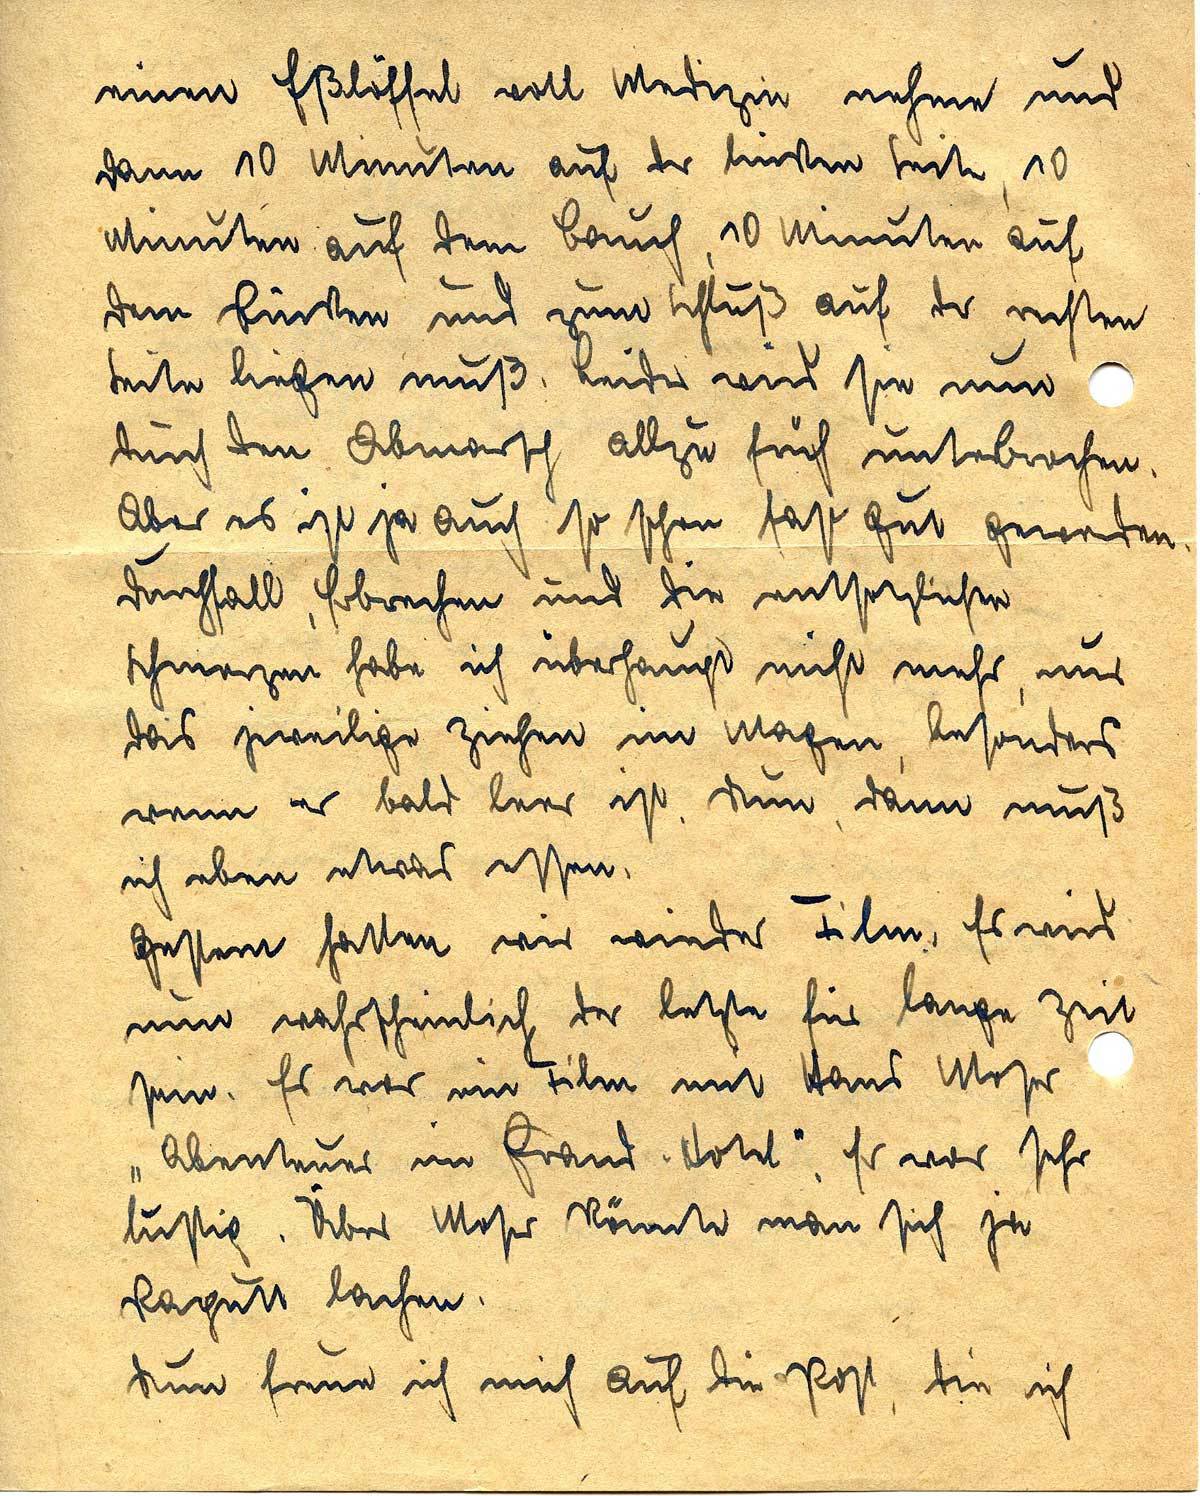 einen Eßlöffel voll Medizin nehme und
dann 10 Minuten auf der linken Seite, 10
Minuten auf dem Bauch, 10 Minuten auf
dem Rücken und zum Schluß auf der rechten
Seite liegen muß. Leider wird sie nun
durch den Abmarsch allzu früh unterbrochen.
Aber es ist ja auch so schon fast gut geworden.
Durchfall, Erbrechen und die entsetzlichen
Schmerzen habe ich überhaupt nicht mehr, nur
das jeweilige Ziehen im Magen, besonders
wenn er bald leer ist. Nun, dann muß
ich eben etwas essen.
Gestern hatten wir wieder Film. Es wird
nun wahrscheinlich der letzte für lange Zeit
sein. Es war ein Film mit Hans Moser
„Abenteuer im Grand-Hotel". Er war sehr
lustig. Über Moser könnte man sich ja
kaputt lachen.
Nun freue ich mich auf die Post, die ich